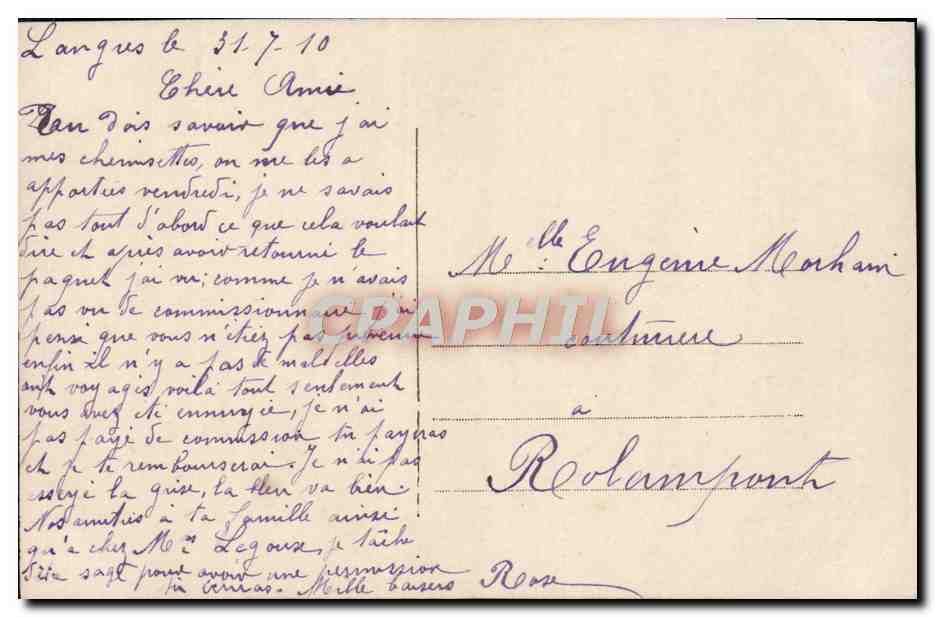 Langres le 31-7-10
Chère Amie
Tu dois savoir que j'ai
mes chemisettes, on me les a
apportées vendredi, je ne savais
pas tout d'abord ce que cela voulait
dire et après avoir retourné le
paquet j'ai vu; comme je n'avais
pas vu de commissionnaire j'ai
pensé que vous n'étiez pas prévenu
enfin il n'y a pas de mal elles
ont voyagés voilà tout seulement
vous avez été ennuyée, je n'ai
pas payé de commission tu payeras
et je te rembourserai. Je n'ai pas
essayé la grise, la bleu va bien.
Nos amitiés à ta famille ainsi
qu'a chez Mr Legoux, je tâche
d'être sage pour avoir une permission
tu verras. Mille baisers Rose
Melle Eugènie Morhain
couturière
a
Rolampont
CPAPHIL